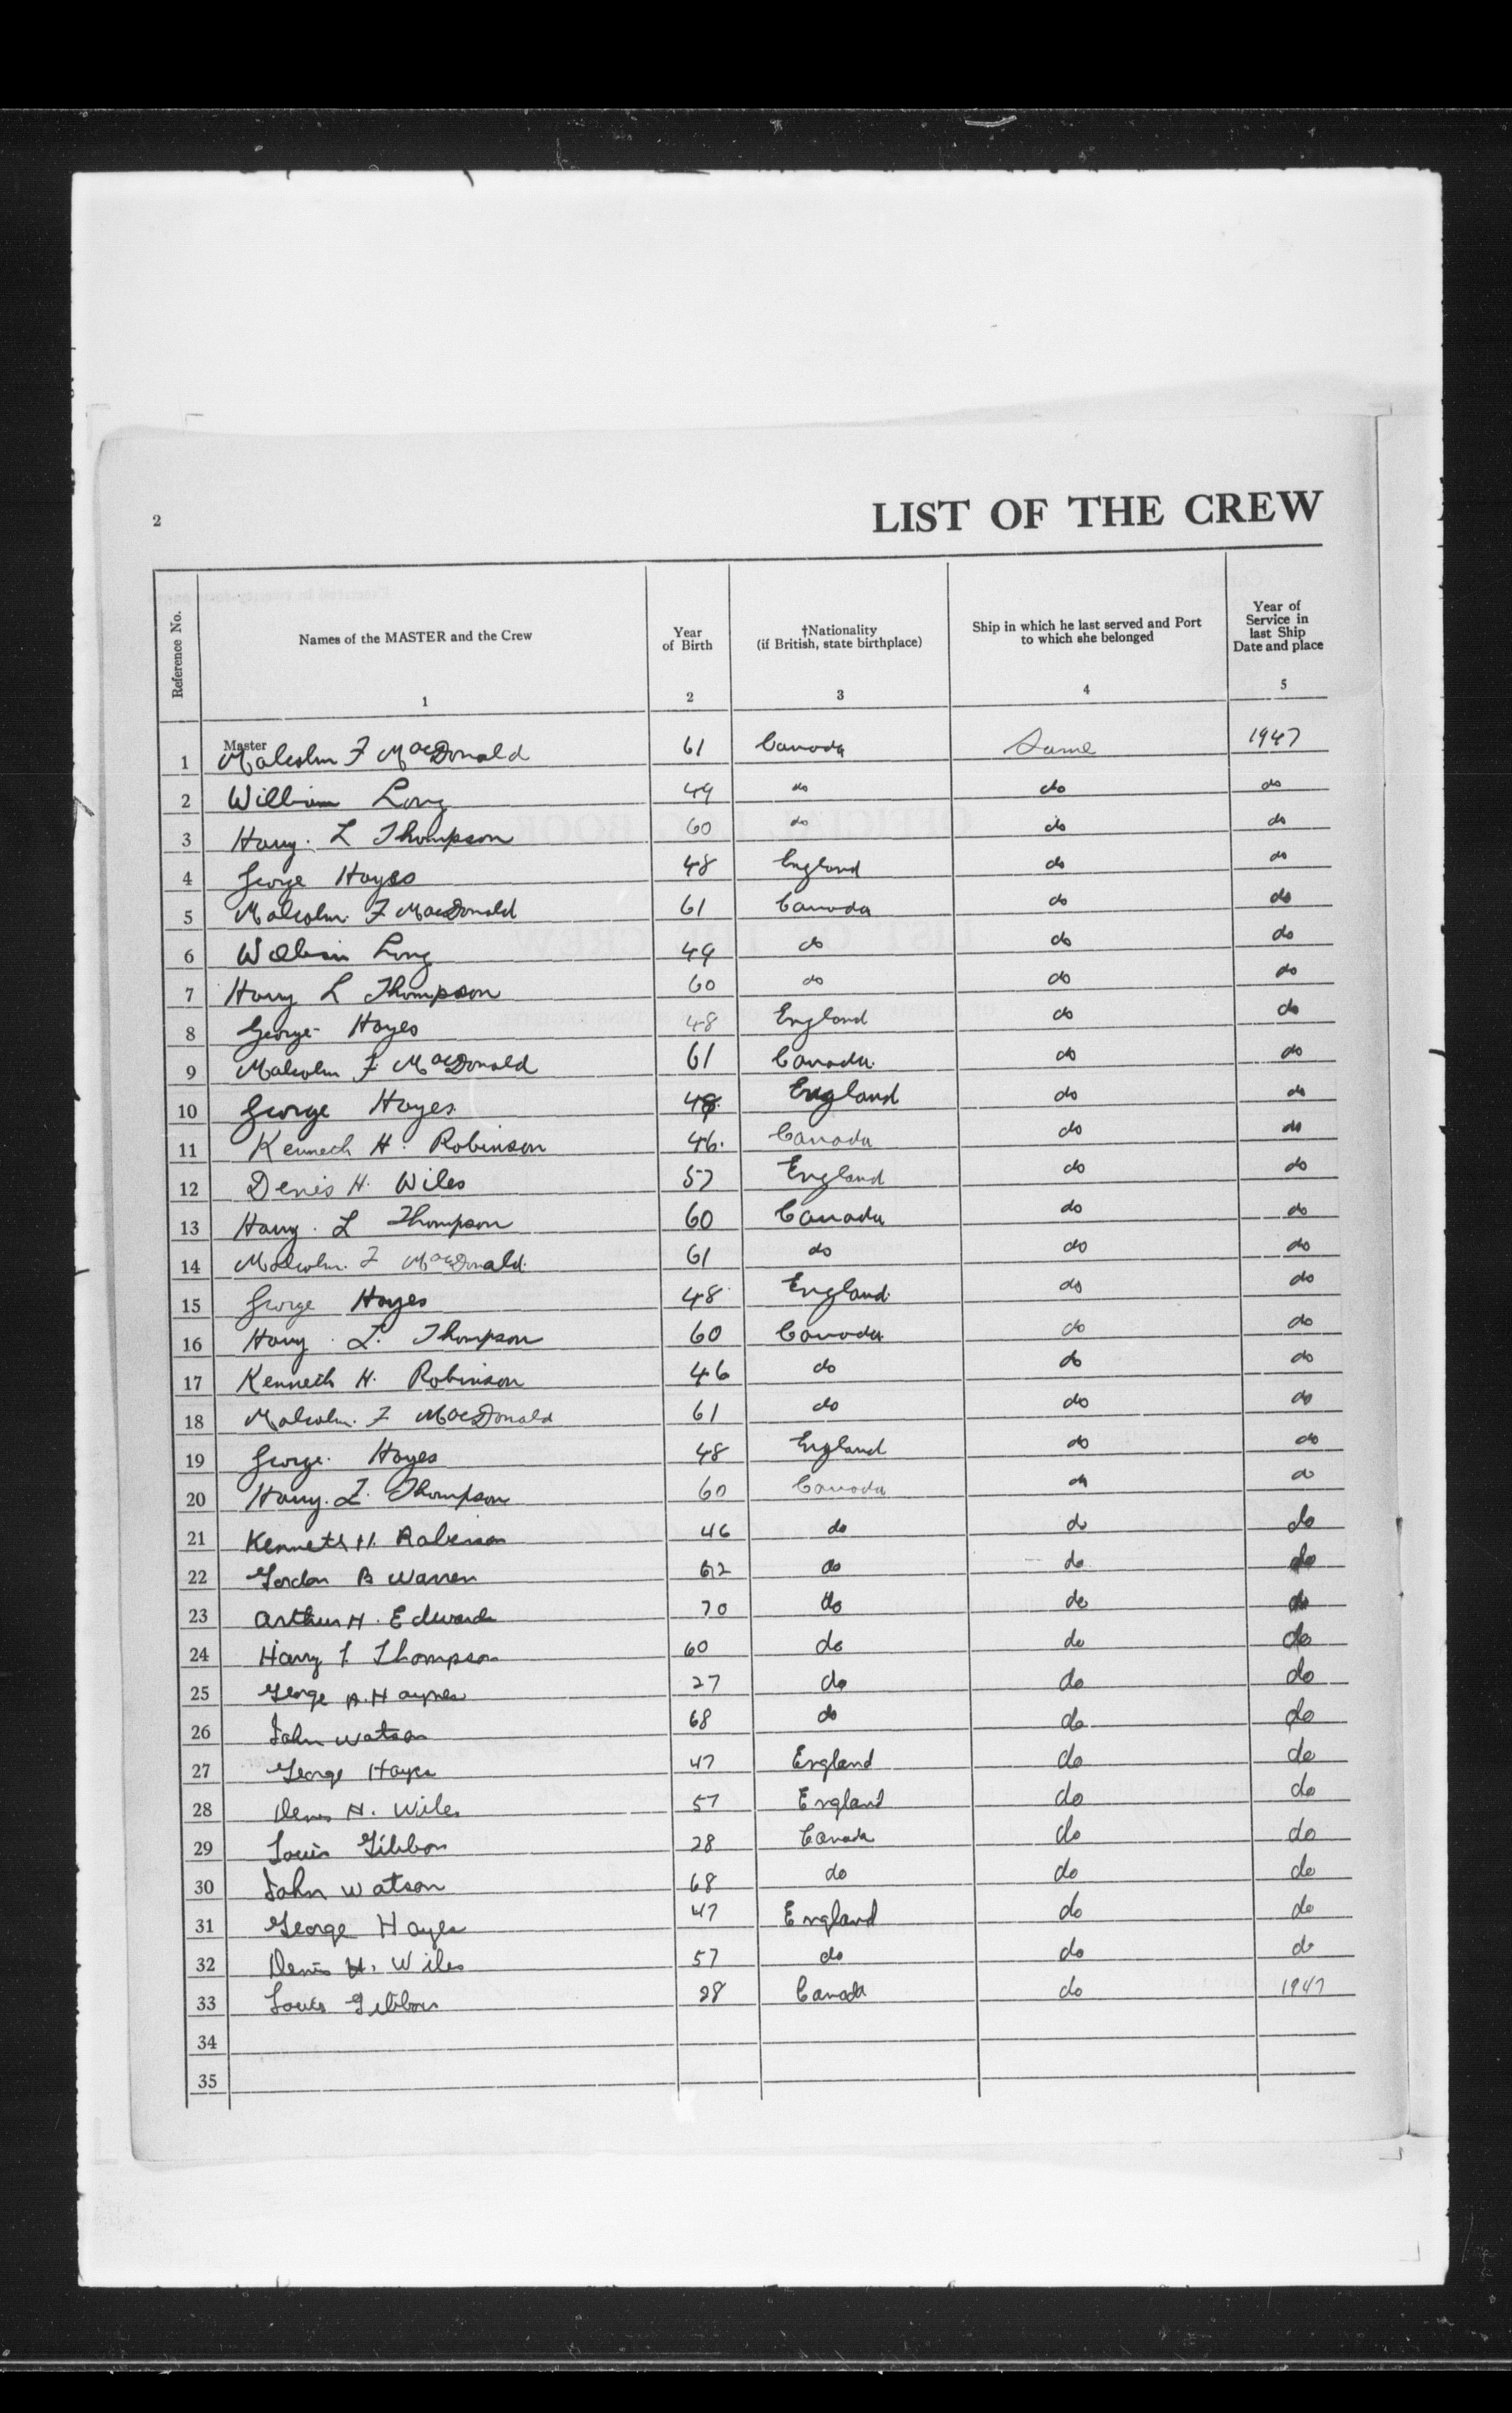 2
LIST OF THE CREW
Reference No.
Names of the MASTER and the Crew
1
Year
of Birth
2
†Nationality
(if British, state birthplace)
3
Ship in which he last served and Port
to which she belonged
4
Year of
Service in
last Ship
Date and place
5
Master
1 Malcolm F MacDonald 61 Canada Same 1947
2 William Long 49 do do do
3 Harry. L Thompson 60 do do do
4 George Hayes 48 England do do
5 Malcolm. F MacDonald 61 Canada do do
6 William Long 49 do do do
7 Harry L Thompson 60 do do do
8 George Hayes 48 England do do
9 Malcolm F. MacDonald 61 Canada. do do
10 George Hayes. 48 England do do
11 Kenneth H. Robinson 46. Canada do do
12 Denis H. Wiles 57 England do do
13 Harry. L Thompson 60 Canada do do
14 Malcolm. F MacDonald. 61 do do do
15 George Hayes 48 England. do do
16 Harry. L. Thompson 60 Canada do do
17 Kenneth H. Robinson 46 do do do
18 Malcolm. F MacDonald 61 do do do
19 George. Hayes 48 England do do
20 Harry. L. Thompson 60 Canada do do
21 Kenneth H. Robinson 46 do do do
22 Gordon B Warren 62 do do do
23 Arthur H. Edwards 70 do do do
24 Harry L Thompson 60 do do do
25 George A. Haynes 27 do do do
26 John Watson 68 do do do
27 George Hayes 47 England do do
28 Denis H. Wiles 57 England do do
29 Louis Gibbon 28 Canada do do
30 John Watson 68 do do do
31 George Hayes 47 England do do
32 Denis H. Wiles 57 do do do
33 Louis Gibbon 28 Canada do 1947
34
35